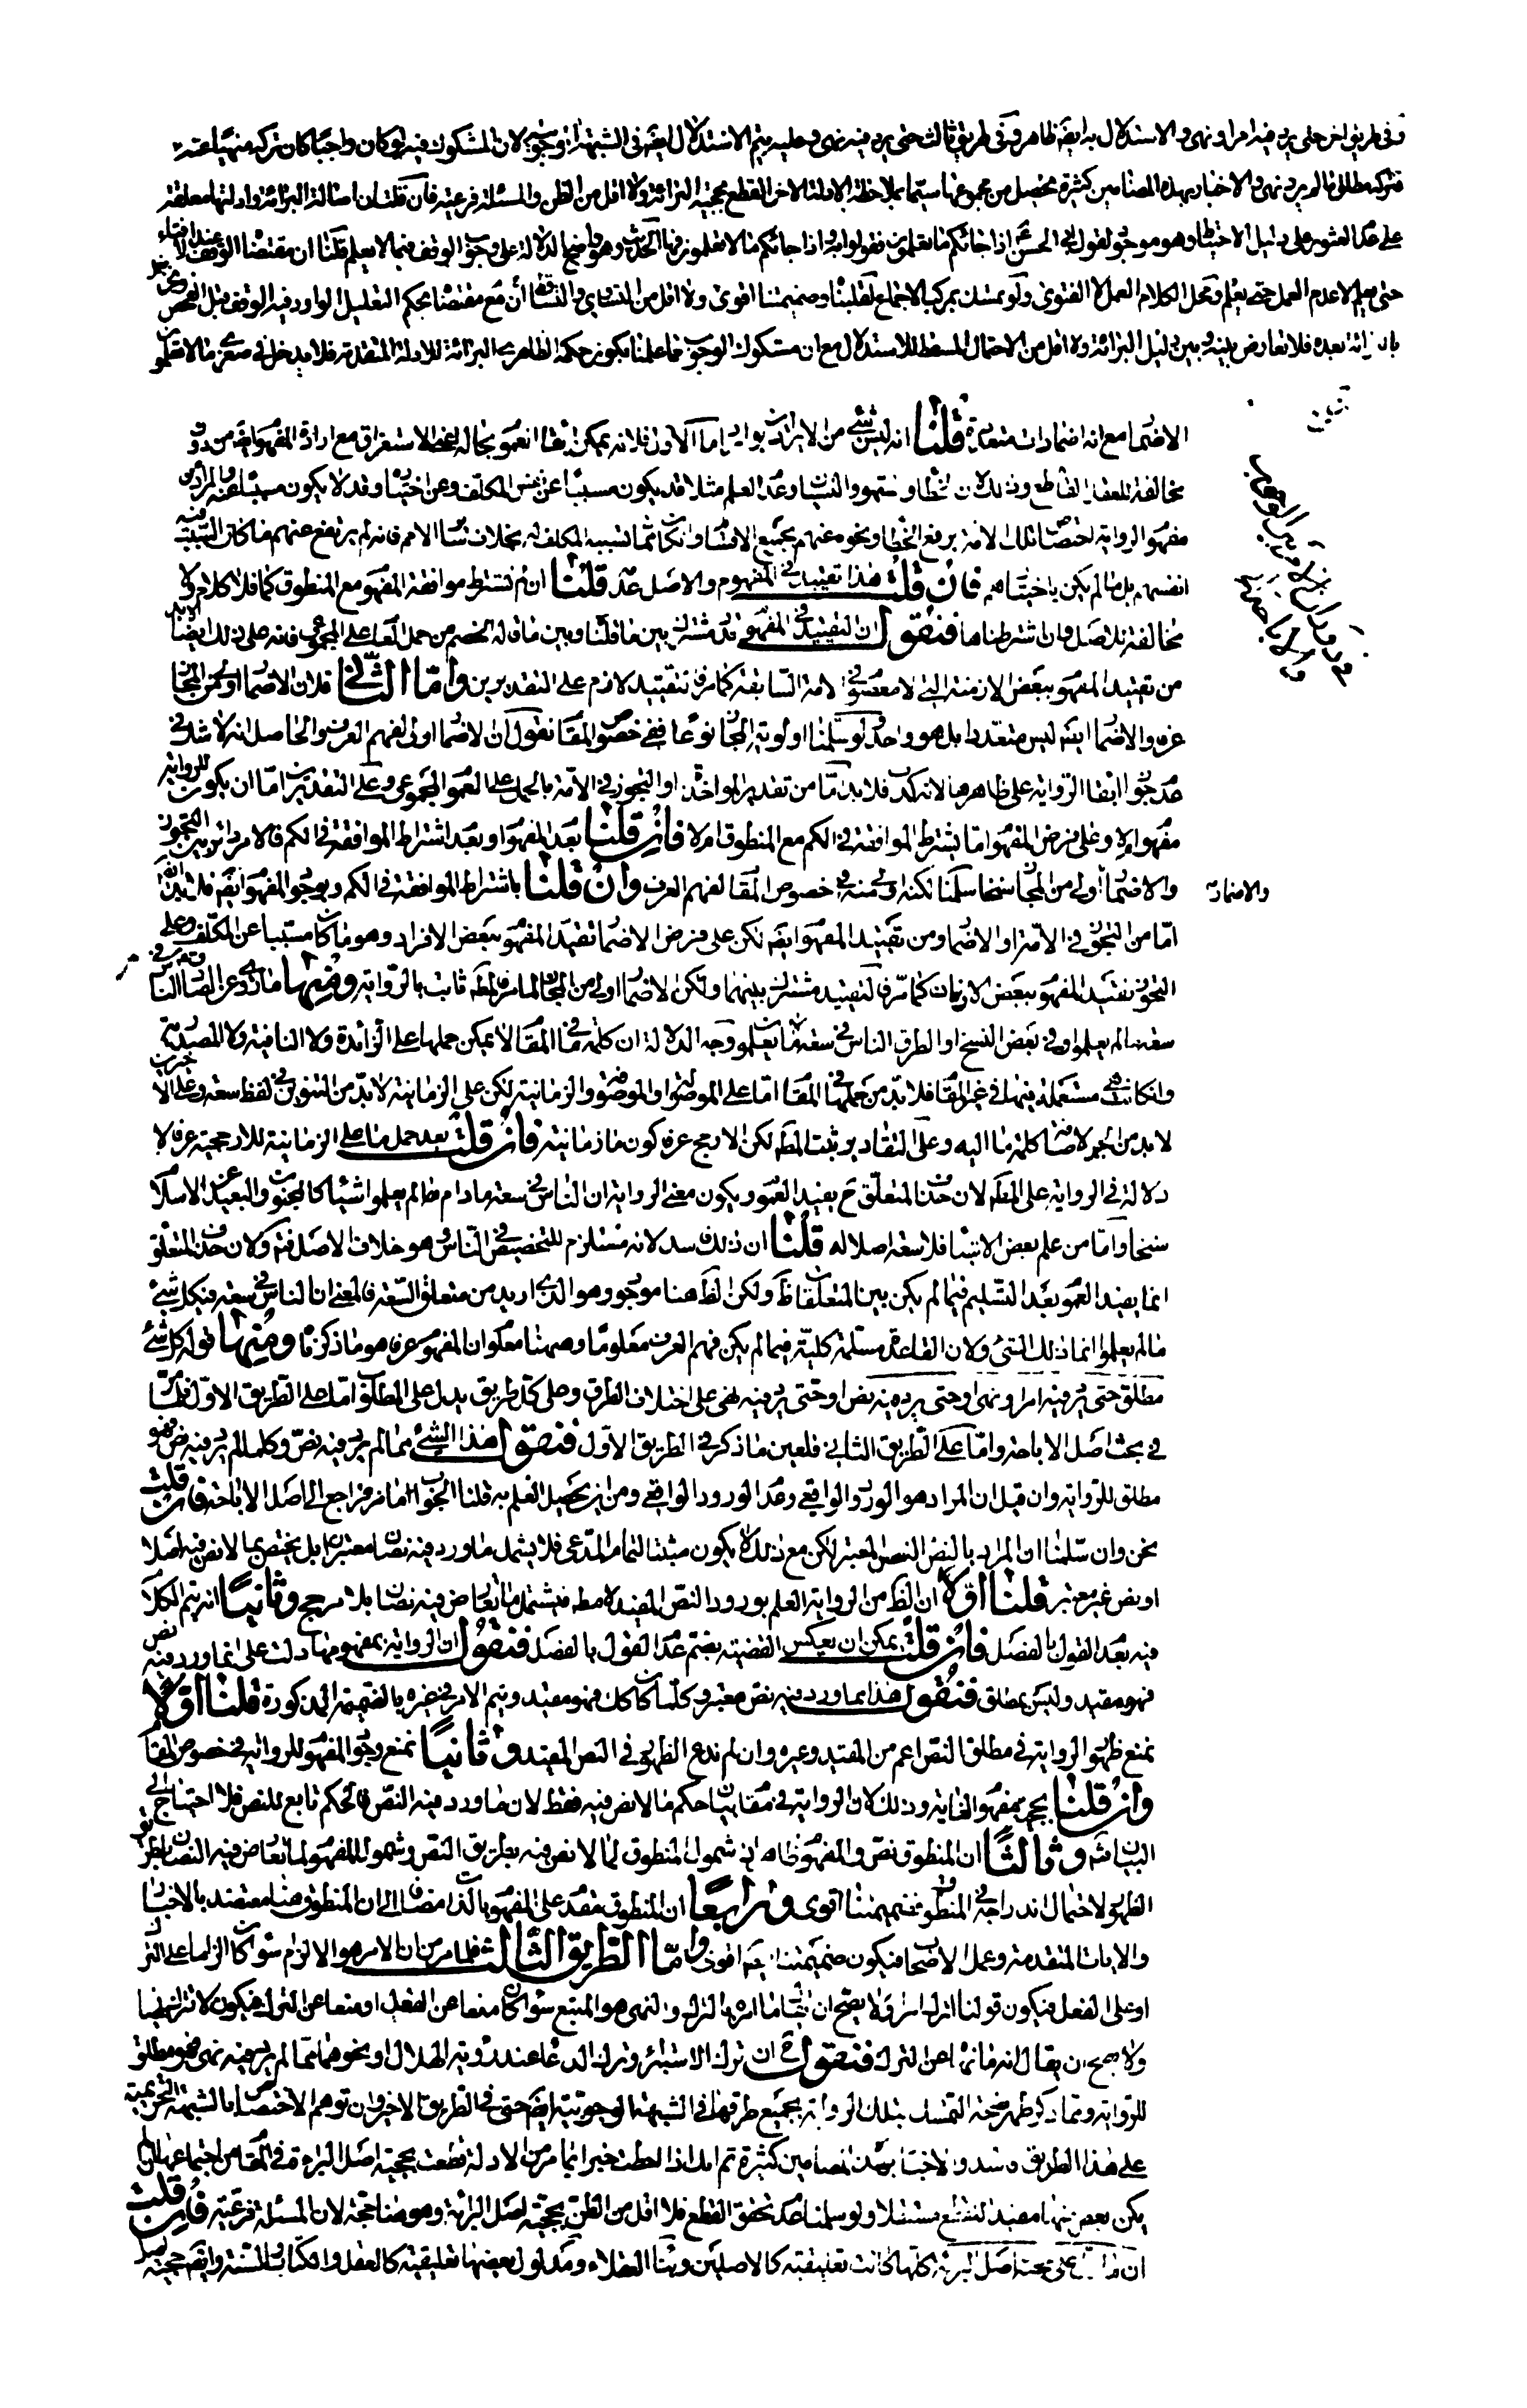 وفى طريق اخر حتى يرد فيه امر او نهى والاستدلال به ايضا ظاهر وفى طريق ثالث حتى يرد فيه نهى وعليه يتم الاستدلال ايضا فى الشبهة الوجوبية لان المشكوك فيه لو كان واجبا كان تركه منهيا عنه
فتركه مطلق ما لم يرد نهى والاخبار بهذه المضامين كثيرة يحصل من مجموعها سيما بملاحظة الادلة الاخر القطع بحجية البرائة ولا اقل من الظن والمسئلة فرعية فان قلت ان اصالة البرائة وادلتها معلقة
على عدم العثور على دليل الاحتياط وهو موجود لقول ابى الحسن اذا جائكم ما تعلمون فقولوا به واذا جائكم ما لا تعلمون فها الحديث وهو واضح الدلالة على وجوب الوقف فيما لا يعلم قلنا ان مقتضا الوقف عند افتاء
حتى يعلم لا عدم العمل حتى يعلم ومحل الكلام العمل لا الفتوى ولو تمسك بمركب الاجماع لقلبنا وضميمتنا اقوى ولا اقل من التساوى والتساقط مع ان مقتضا بحكم التعليل الوارد فيه الوقف قبل الفحص
بعده فلا تعارض بينه وبين دليل البرائة ولا اقل من الاحتمال المسقط للاستدلال مع ان مشكوك الوجوب مما علمنا بكون حكمه الظاهرى البرائة للادلة المتقدمة فلا يدخل فى صغرى ما لا تعلمون
الاضمار مع انه اضمارات متعددة قلنا انه ليس شئ من الايرادين بوارد اما الاول فلانه يمكن ابقاء العموم بحاله لحفظ الاستغراق مع ارادة المفهوم ايضا من دون
مخالفة للعقل القاطع وذلك لان الخطا والسهو والنسيان وعدم العلم مثلا قد يكون مسببا عن نفس المكلف وعن اختياره وقد لا يكون مسببا عنه والمراد من
مفهوم الرواية اختصاص تلك الامة برفع الخطا ونحوه عنهم بجميع الاقسام وان كان مما تسببه المكلف له بخلاف سائر الامم فانه لم يرتفع عنهم ما كان السبب فيه
انفسهم بل ما لم يكن باختيارهم فان قلت هذا تقييد فى المفهوم والاصل عدمه قلنا ان لم نشترط موافقة المفهوم مع المنطوق كما فلا كلام ولا
مخالفة للاصل وان اشترطناها فنقول ان التقييد فى المفهوم قدر مشترك بين ما قلنا وبين ما قاله الخصم من حمل العام على المجموعى فانه على ذلك ايضا لا بد
من تقييد المفهوم ببعض الازمنة التى لا معصوم فى الامة السابقة كما مر فالتقييد لازم على التقديرين واما الثانى فلان الاضمار اولى من المجاز
عرفا والاضمار ايضا ليس متعددا بل هو واحد ولو سلمنا اولوية المجاز نوعا ففى خصوص المقام نقول ان الاضمار اولى لفهم العرف والحاصل انه لا شك فى
عدم جواز ابقاء الرواية على ظاهرها لانه كذب فلا بد اما من تقدير المواخذة او التجوز فى الامة بالحمل على العموم المجموعى وعلى التقديرين اما ان يكون للرواية
مفهوم ام لا وعلى فرض المفهوم اما يشترط الموافقة فى الكم مع المنطوق ام لا فان قلنا بعدم المفهوم او بعدم اشتراط الموافقة فى الكم فالامر دائر بين التجوز
والاضمار اولى من المجاز سنخا سلمنا لكنه اولى منه فى خصوص المقام لفهم العرف وان قلنا باشتراط الموافقة فى الكم وبوجود المفهوم ايضا فلا بد
والاضمار
اما من التجوز فى الامة او الاضمار ومن تقييد المفهوم ايضا لكن على فرض الاضمار نقيد المفهوم ببعض الافراد وهو ما كان مسببا عن المكلف وعلى
التجوز نقيد المفهوم ببعض الازمان كما مر فالتقييد مشترك بينهما ولكن الاضمار اولى من المجاز لما مر فالمط ثابت بالرواية ومنها ما روى عن الصادق الناس فى
سعة ما لم يعلموا وفى بعض النسخ او الطرق الناس فى سعة ما لا يعلمون وجه الدلالة ان كلمة ما فى المقام لا يمكن حملها على الزائدة ولا النافية ولا المصدرية
وان كانت هى مستعملة فيها فى غير المقام فلا بد من حملها فى المقام اما على الموصولة او الموصوفة والزمانية لكن على الزمانية لا بد من التنوين فى لفظ سعة وعلى الاخيرين
لا بد من الجر لاضافة كلمة ما اليه وعلى التقادير يثبت المط لكن الارجح عرفا كون ما زمانية فان قلت بعد حمل ما على الزمانية للارجحية عرفا لا
دلالة فى الرواية على المط لان حذف المتعلق ح يفيد العموم ويكون معنى الرواية ان الناس فى سعة ما دام ما لم يعلموا شيئا كالمجنون والبعيد عن الاسلام
سنخا واما من علم بعض الاشياء فلا سعة اصلا له قلنا ان ذلك فاسد لانه مستلزم للتخصيص فى الناس وهو خلاف الاصل فيه ولان حذف المتعلق
انما يفيد العموم بعد التسليم فيما لم يكن بين المتعلقات ظاهر ولكن الظاهر هنا موجود وهو الذى اريد من متعلق السعة فالمعنى ان الناس فى سعة فى كل شئ
ما لم يعلموا انما ذلك الشئ ولان القاعدة مسلمة كلية فيما لم يكن فهم العرف معلوما وههنا معلوم ان المفهوم عرفا هو ما ذكرنا ومنها قوله كل شئ
مطلق حتى يرد فيه امر او نهى او حتى يرد فيه نص او حتى يرد فيه نهى على اختلاف الطرق وعلى كل طريق يدل على المطلوب اما على الطريق الاول فلما مر
فى بحث اصل الاباحة واما على الطريق الثانى فلعين ما ذكر فى الطريق الاول فنقول هذا الشئ مما لم يرد فيه نص وكلما لم يرد فيه نص فهو
مطلق للرواية وان قيل ان المراد هو الورود الواقعى وعدم الورود الواقعى ومن اين يحصل العلم به قلنا الجواب ما مر فراجع الى اصل الاباحة فان قلت
نحن وان سلمنا ان المراد بالنص النص المعتبر لكن مع ذلك لا يكون مثبتا لتمام المدعى فلا يشمل ما ورد فيه نصان معتبران بل يختص بما لا نص فيه اصلا
او نص غير معتبر قلنا اولا ان الظاهر من الرواية العلم بورود النص المفيد لا مطلقا فيشتمل ما تعارض فيه نصان بلا مرجح وثانيا انه يتم الكلام
فيه بعدم القول بالفصل فان قلت يمكن ان يعكس القضية بضم عدم القول بالفصل فنقول ان الرواية بمفهومها دلت على انما ورد فيه نص
فهو مقيد وليس بمطلق فنقول هذا مما ورد فيه نص معتبر وكلما كان كك فهو مقيد ويتم الامر فى غيره بالضميمة المذكورة قلنا اولا
نمنع ظهور الرواية فى مطلق النص اعم من المقيد وغيره وان لم ندع الظهور فى النص المفيد وثانيا نمنع وجود المفهوم للرواية فى خصوص المقام
وان قلنا بحجية مفهوم الغاية وذلك لان الرواية فى مقام بيان حكم ما لا نص فيه فقط لان ما ورد فيه النص فالحكم تابع للنص فلا احتياج الى
البيان فيه وثالثا ان المنطوق نص والمفهوم ظاهر اذ شمول المنطوق لما لا نص فيه بطريق النص وشمول المفهوم لما تعارض فيه النصان بطريق
الظهور لاحتمال اندراجه فى المنطوق فضميمتنا اقوى ورابعا ان المنطوق مقدم على المفهوم بالذات مضافا الى ان المنطوق هنا معتضد بالاخبار
والايات المتقدمة وعمل الاصحاب فيكون ضميمتنا ايضا اقوى واما الطريق الثالث فلما مر من ان الامر هو الالزام سواء كان الزاما على الترك
او على الفعل فيكون قولنا اترك امرا ولا يصح ان يقال ما امر بل اترك والنهى هو المنع سواء كان منعا عن الفعل او منعا عن الترك فيكون لا تترك نهيا
ولا يصح ان يقال انه ما نهى عن الترك فنقول ح ان ترك الاستبراء وترك الدعاء عند رؤية الهلال او نحوهما مما لم يرد فيه نهى فهو مطلق
للرواية ومما ذكر ظهر صحة التمسك بتلك الرواية بجميع طرقها فى الشبهة الوجوبية ايضا حتى فى الطريق الاخير وان توهم الاختصاص بالشبهة التحريمية
على هذا الطريق فاسد والاخبار بهذه المضامين كثيرة ثم انك اذا احطت خبرا بما مر من الادلة قطعت بحجية اصل البرائة فى المقام من اجتماعها وان لم
يكن بعض منها مفيدا للقطع مستقلا ولو سلمنا عدم تحقق القطع فلا اقل من الظن بحجية اصل البرائة وهو هنا حجة لان المسئلة فرعية فان قلت
ان على حجية اصل البرائة كلها كانت تعليقية كالاصلين وبناء العقلاء ومدلول بعضها تعليقية كالعقل والكتاب والسنة وايضا حجية اصل